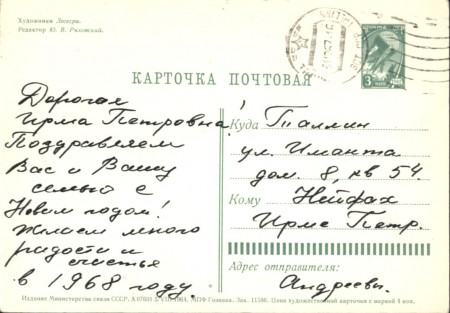 Художники Лесегри.
Редактор Ю. В. Ряховский.
КАРТОЧКА ПОЧТОВАЯ
Дорогая
Ирма Петровна!
Поздравляем
Вас и Вашу
семью с
Новым годом!
Желаем много
радости и
счастья
в 1968 году.
Куда Таллин
ул. Иманта
дом. 8, кв 54.
Кому Нейфах
Ирме Петр.
Адрес отправителя:
Андреевы.
Издание Министерства связи СССР. 1964. МПФ Гознака. Зак. 11586. Цена художественной карточки с маркой 4 коп.